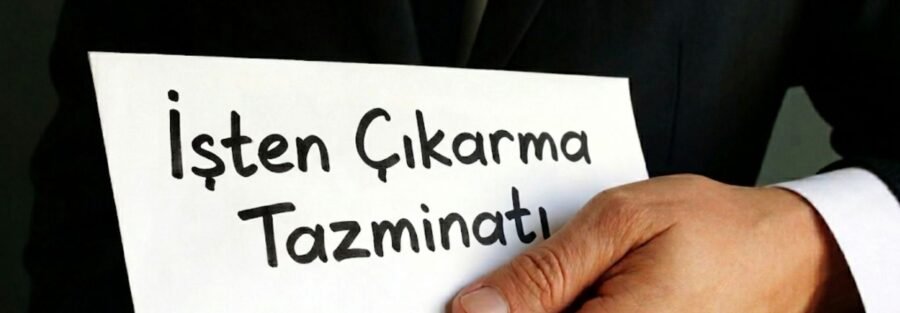 İşten Çıkarma
Tazminatı